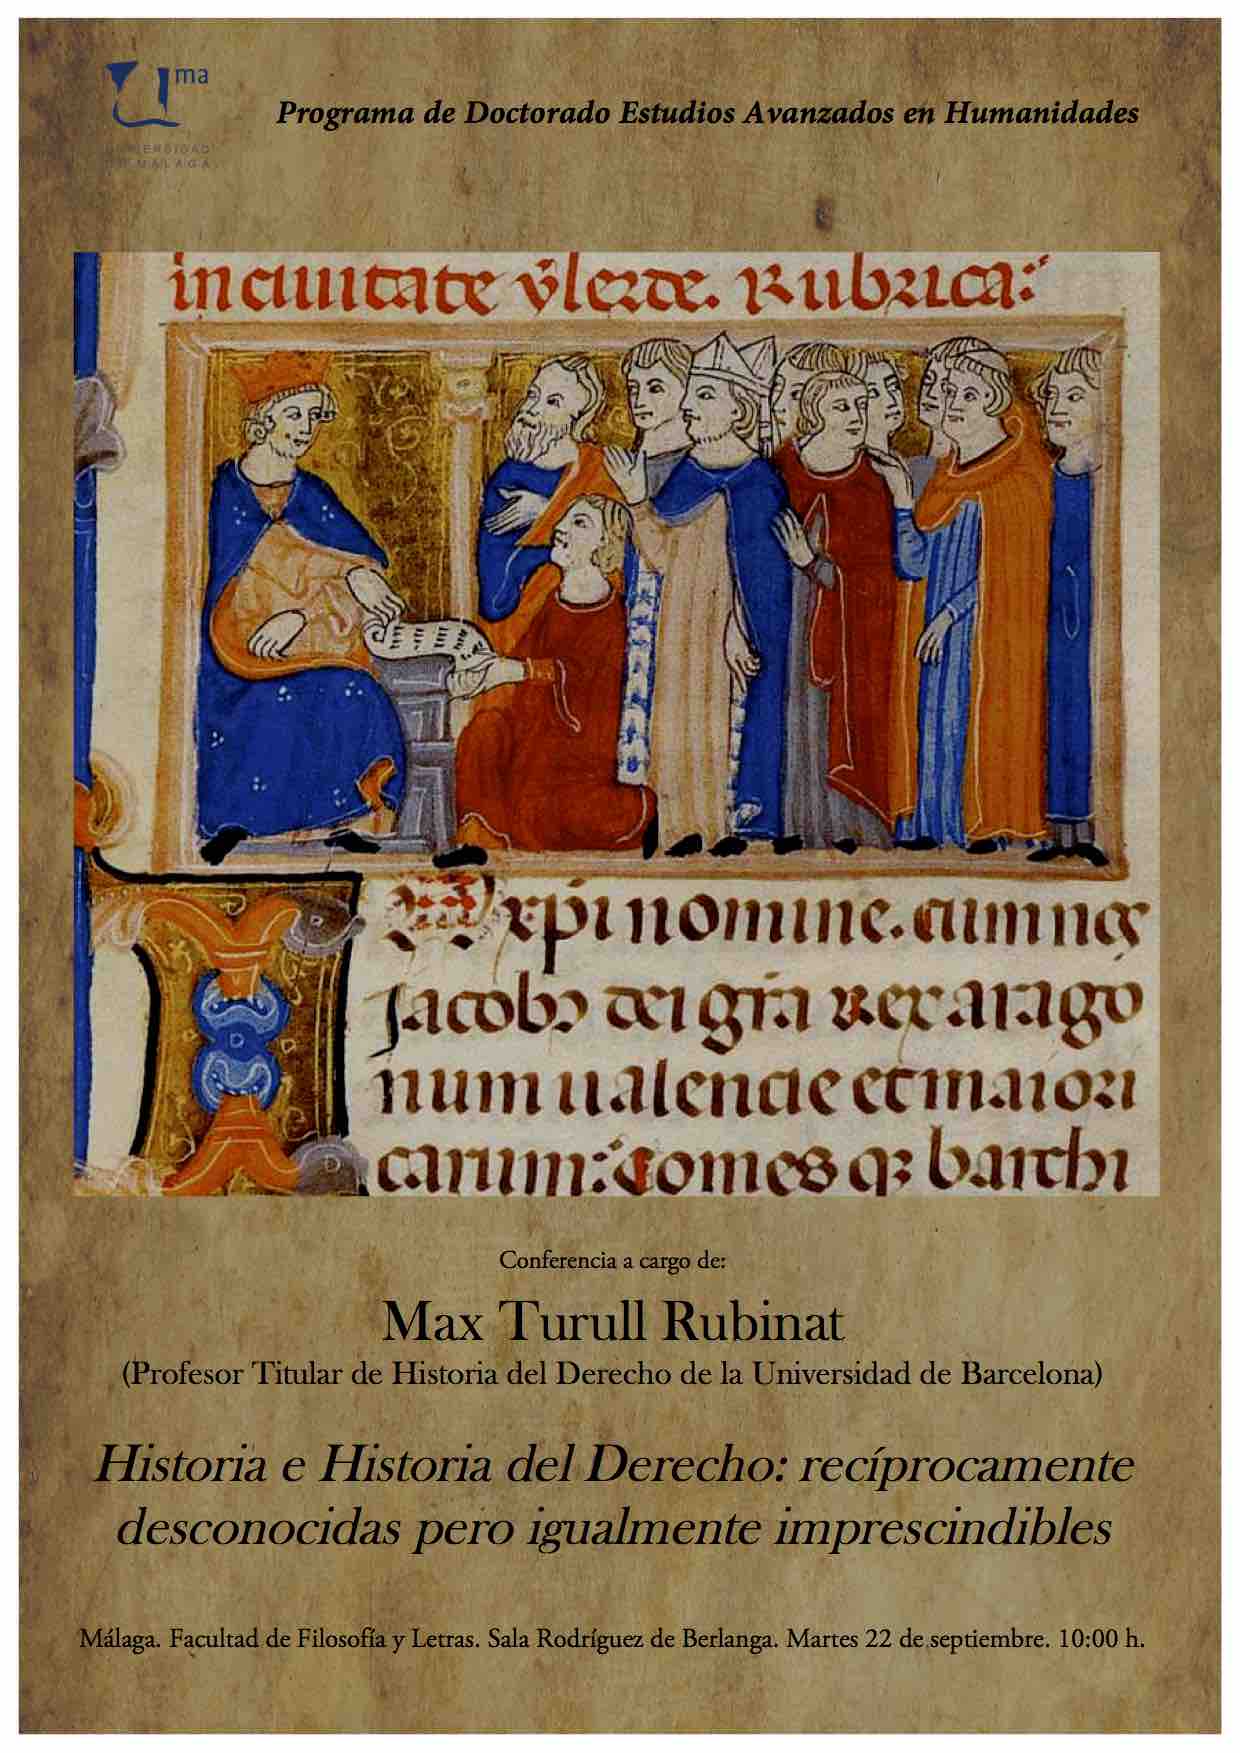 uma
UNIVERSIDAD
DE MÁLAGA
Programa de Doctorado Estudios Avanzados en Humanidades
in ciuitate ylerde. Rubrica:
xpi nomine. cum nos
Jacobus dei gra rex arago
num ualencie et maiori
carum: Comes q3 barchi
Conferencia a cargo de:
Max Turull Rubinat
(Profesor Titular de Historia del Derecho de la Universidad de Barcelona)
Historia e Historia del Derecho: recíprocamente
desconocidas pero igualmente imprescindibles
Málaga. Facultad de Filosofía y Letras. Sala Rodríguez de Berlanga. Martes 22 de septiembre. 10:00 h.